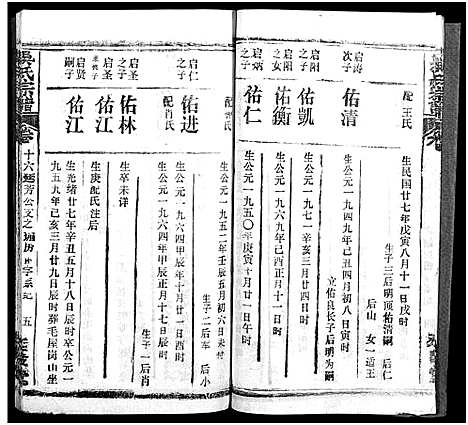 配王氏
生民国廿七年戊寅八月十一日戌时
生子三后明顶佑清嗣 后仁
后山 女一适王
启涛
次子
佑清
生公元一九四九年己丑四月初八日寅时
立佑良长子后明为嗣
启阳
之子
佑凯
生公元一九七一辛亥三月廿四日
启阳
之女
佑衡
生公元一九六九年己酉正月十一时
启炳
之子
佑仁
生公元一九五〇年庚寅 月十一日午时
配肖氏
生公元一九五二年壬辰五月初六日未时
生子二后车 后小
启仁
之子
佑进
生公元一九六四甲辰年十一月十一日亥时
配肖氏
生公元一九六四年甲辰正月十七日辰时
生子一后肖
启圣
之子
佑林
生卒未详
启圣
佑江
生庚配氏注后
启贤
嗣子
佑江
生光绪廿七年辛丑五月十八日辰时卒公元一
九五九年己亥三月廿九日辰时葬毛屋岗山坐
吴氏宗谱
五